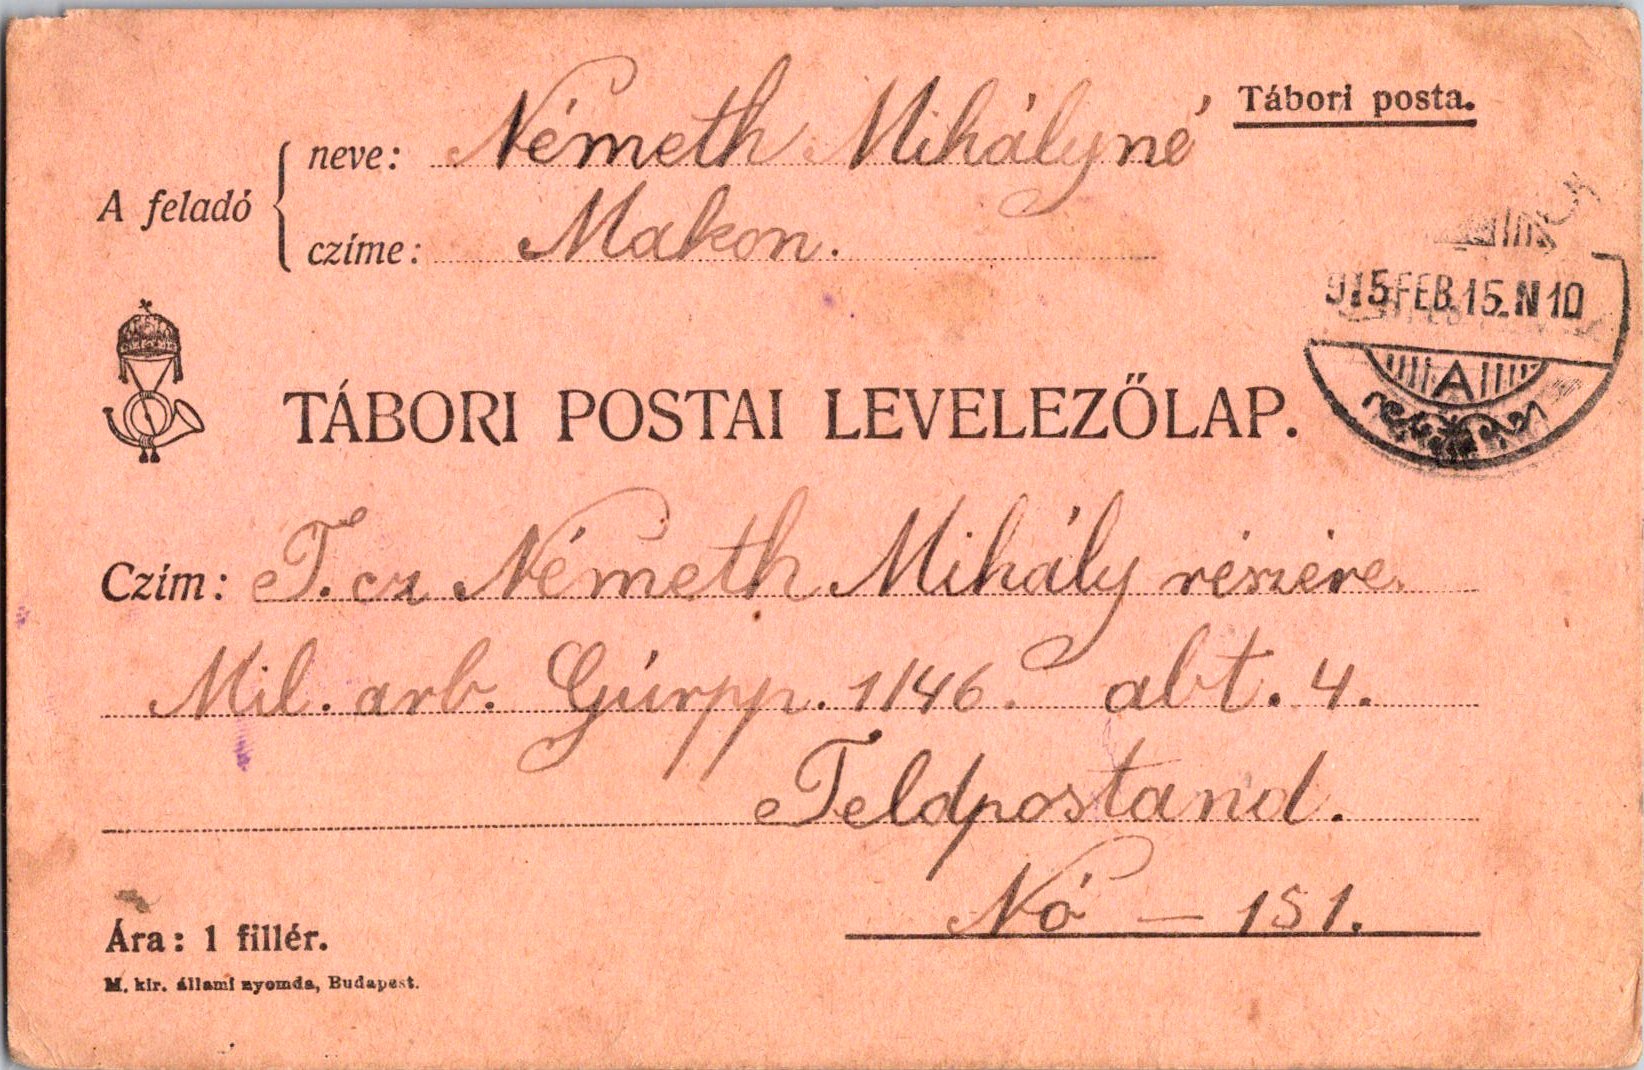 Tábori posta.
A feladó
neve: Németh Mihályné
czíme: Makon.
915 FEB. 15. N 10
A
TÁBORI POSTAI LEVELEZŐLAP.
Czím: T. cz Németh Mihály részére.
Mil. arb. Gúrpp. 1/46. abt. 4.
Feldpostand.
Nó — 151.
Ára: 1 fillér.
M. kir. állami nyomda, Budapest.